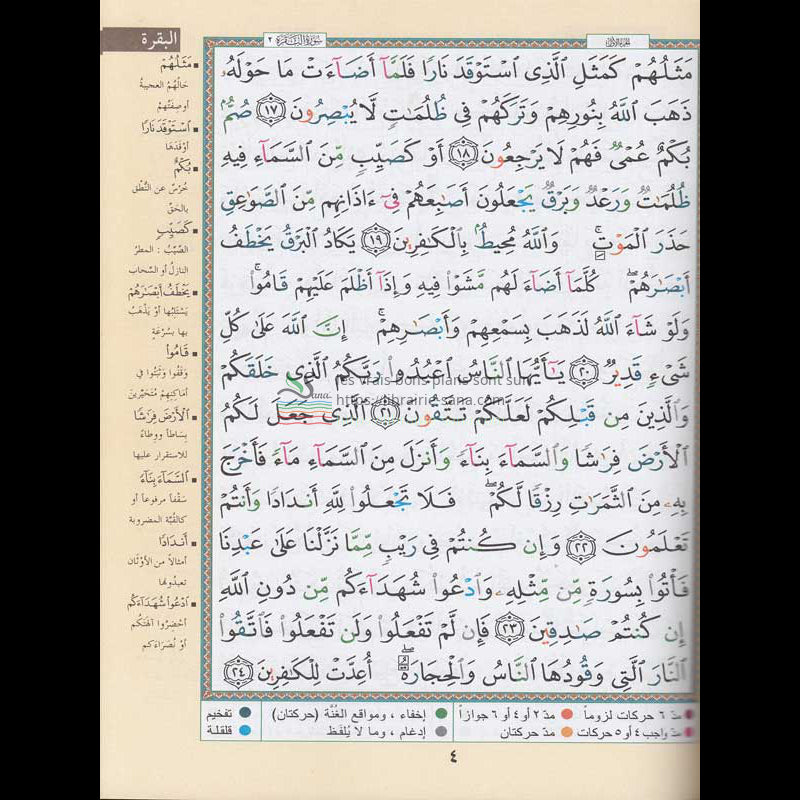 البقرة
سورة البقرة ٢
الجزء الأول
مَثَلُهُمْ كَمَثَلِ ٱلَّذِى ٱسْتَوْقَدَ نَارًا فَلَمَّآ أَضَآءَتْ مَا حَوْلَهُۥ
ذَهَبَ ٱللَّهُ بِنُورِهِمْ وَتَرَكَهُمْ فِى ظُلُمَٰتٍ لَّا يُبْصِرُونَ ١٧ صُمٌّۢ
بُكْمٌ عُمْىٌ فَهُمْ لَا يَرْجِعُونَ ١٨ أَوْ كَصَيِّبٍ مِّنَ ٱلسَّمَآءِ فِيهِ
ظُلُمَٰتٌ وَرَعْدٌ وَبَرْقٌ يَجْعَلُونَ أَصَٰبِعَهُمْ فِىٓ ءَاذَانِهِم مِّنَ ٱلصَّوَٰعِقِ
حَذَرَ ٱلْمَوْتِ ۚ وَٱللَّهُ مُحِيطٌۢ بِٱلْكَٰفِرِينَ ١٩ يَكَادُ ٱلْبَرْقُ يَخْطَفُ
أَبْصَٰرَهُمْ ۖ كُلَّمَآ أَضَآءَ لَهُم مَّشَوْا۟ فِيهِ وَإِذَآ أَظْلَمَ عَلَيْهِمْ قَامُوا۟ ۚ
وَلَوْ شَآءَ ٱللَّهُ لَذَهَبَ بِسَمْعِهِمْ وَأَبْصَٰرِهِمْ ۚ إِنَّ ٱللَّهَ عَلَىٰ كُلِّ
شَىْءٍ قَدِيرٌ ٢٠ يَٰٓأَيُّهَا ٱلنَّاسُ ٱعْبُدُوا۟ رَبَّكُمُ ٱلَّذِى خَلَقَكُمْ
وَٱلَّذِينَ مِن قَبْلِكُمْ لَعَلَّكُمْ تَتَّقُونَ ٢١ ٱلَّذِى جَعَلَ لَكُمُ
ٱلْأَرْضَ فِرَٰشًا وَٱلسَّمَآءَ بِنَآءً وَأَنزَلَ مِنَ ٱلسَّمَآءِ مَآءً فَأَخْرَجَ
بِهِۦ مِنَ ٱلثَّمَرَٰتِ رِزْقًا لَّكُمْ ۖ فَلَا تَجْعَلُوا۟ لِلَّهِ أَندَادًا وَأَنتُمْ
تَعْلَمُونَ ٢٢ وَإِن كُنتُمْ فِى رَيْبٍ مِّمَّا نَزَّلْنَا عَلَىٰ عَبْدِنَا
فَأْتُوا۟ بِسُورَةٍ مِّن مِّثْلِهِۦ وَٱدْعُوا۟ شُهَدَآءَكُم مِّن دُونِ ٱللَّهِ
إِن كُنتُمْ صَٰدِقِينَ ٢٣ فَإِن لَّمْ تَفْعَلُوا۟ وَلَن تَفْعَلُوا۟ فَٱتَّقُوا۟
ٱلنَّارَ ٱلَّتِى وَقُودُهَا ٱلنَّاسُ وَٱلْحِجَارَةُ ۖ أُعِدَّتْ لِلْكَٰفِرِينَ ٢٤
Sana
les vrais bons plans sont sur
https://librairie-sana.com
مَثَلُهُمْ
حَالُهُمُ العجيبةُ
أو صِفَتُهُمْ
ٱسْتَوْقَدَ نَارًا
أوْقَدَهَا
بُكْمٌ
خُرْسٌ عن النُّطْقِ
بالحَقِّ
كَصَيِّبٍ
الصَّيِّبُ : المطرُ
النازلُ أو السَّحاب
يَخْطَفُ أَبْصَٰرَهُمْ
يَسْتَلِبُهَا أوْ يَذْهَبُ
بها بسُرْعَةٍ
قَامُوا۟
وَقَفُوا وَثَبَتُوا في
أماكِنِهِمْ مُتَحَيِّرينَ
ٱلْأَرْضَ فِرَٰشًا
بِساطاً وَوِطَاءً
للاستقرار عليها
ٱلسَّمَآءَ بِنَآءً
سَقْفاً مرفوعاً أو
كالقُبَّةِ المضروبة
أَندَادًا
أمثالاً من الأوثان
تعبدُونها
ٱدْعُوا۟ شُهَدَآءَكُم
أحْضِرُوا آلهتكم
أوْ نُصَرَاءَكم
مدّ ٦ حركات لزوماً
مدّ ٢ أو ٤ أو ٦ جوازاً
إخفاء ، ومواقع الغُنَّة (حركتان)
تفخيم
مدّ واجب ٤ أو ٥ حركات
مدّ حركتان
إدغام ، وما لا يُلفَظ
قلقلة
٤